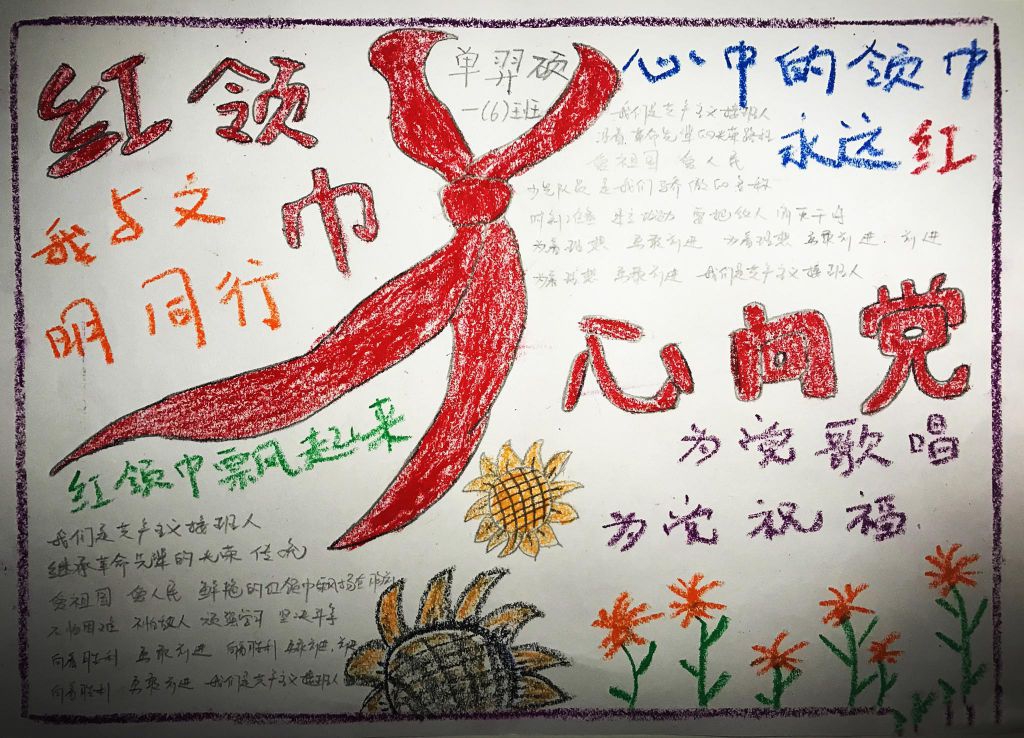 红领
巾
单羿硕
一(6)班
心中的领巾
永远红
我与文
明同行
我们是共产主义接班人
沿着革命先辈的光荣路程
爱祖国 爱人民
少先队员是我们骄傲的名称
时刻准备 建立功勋 要把敌人消灭干净
为着理想 勇敢前进 为着理想 勇敢前进 前进
为着理想 勇敢前进 我们是共产主义接班人
心向党
为党歌唱
为党祝福
红领巾飘起来
我们是共产主义接班人
继承革命先辈的光荣传统
爱祖国 爱人民 鲜艳的红领巾飘扬在前胸
不怕困难 不怕敌人 顽强学习 坚决斗争
向着胜利 勇敢前进 向着胜利 勇敢前进 前进
向着胜利 勇敢前进 我们是共产主义接班人